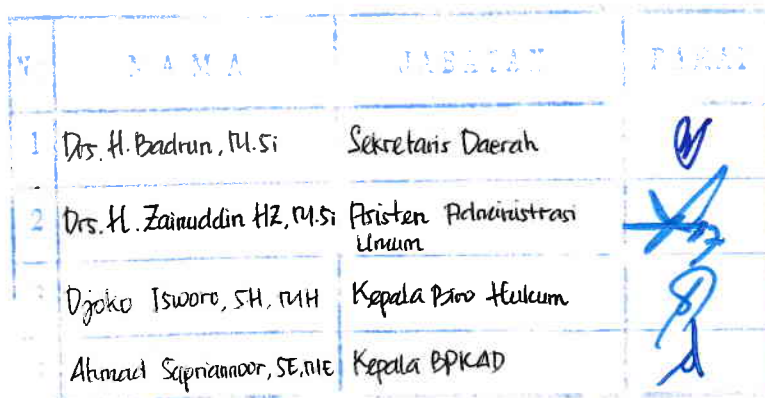 NAMA JABATAN PARAF
1 Drs. H. Badrun, M.Si Sekretaris Daerah
2 Drs. H. Zainuddin HZ, M.Si Asisten Administrasi
Umum
Djoko Isworo, SH, MH Kepala Biro Hukum
Ahmad Sapriannoor, SE, ME Kepala BPKAD